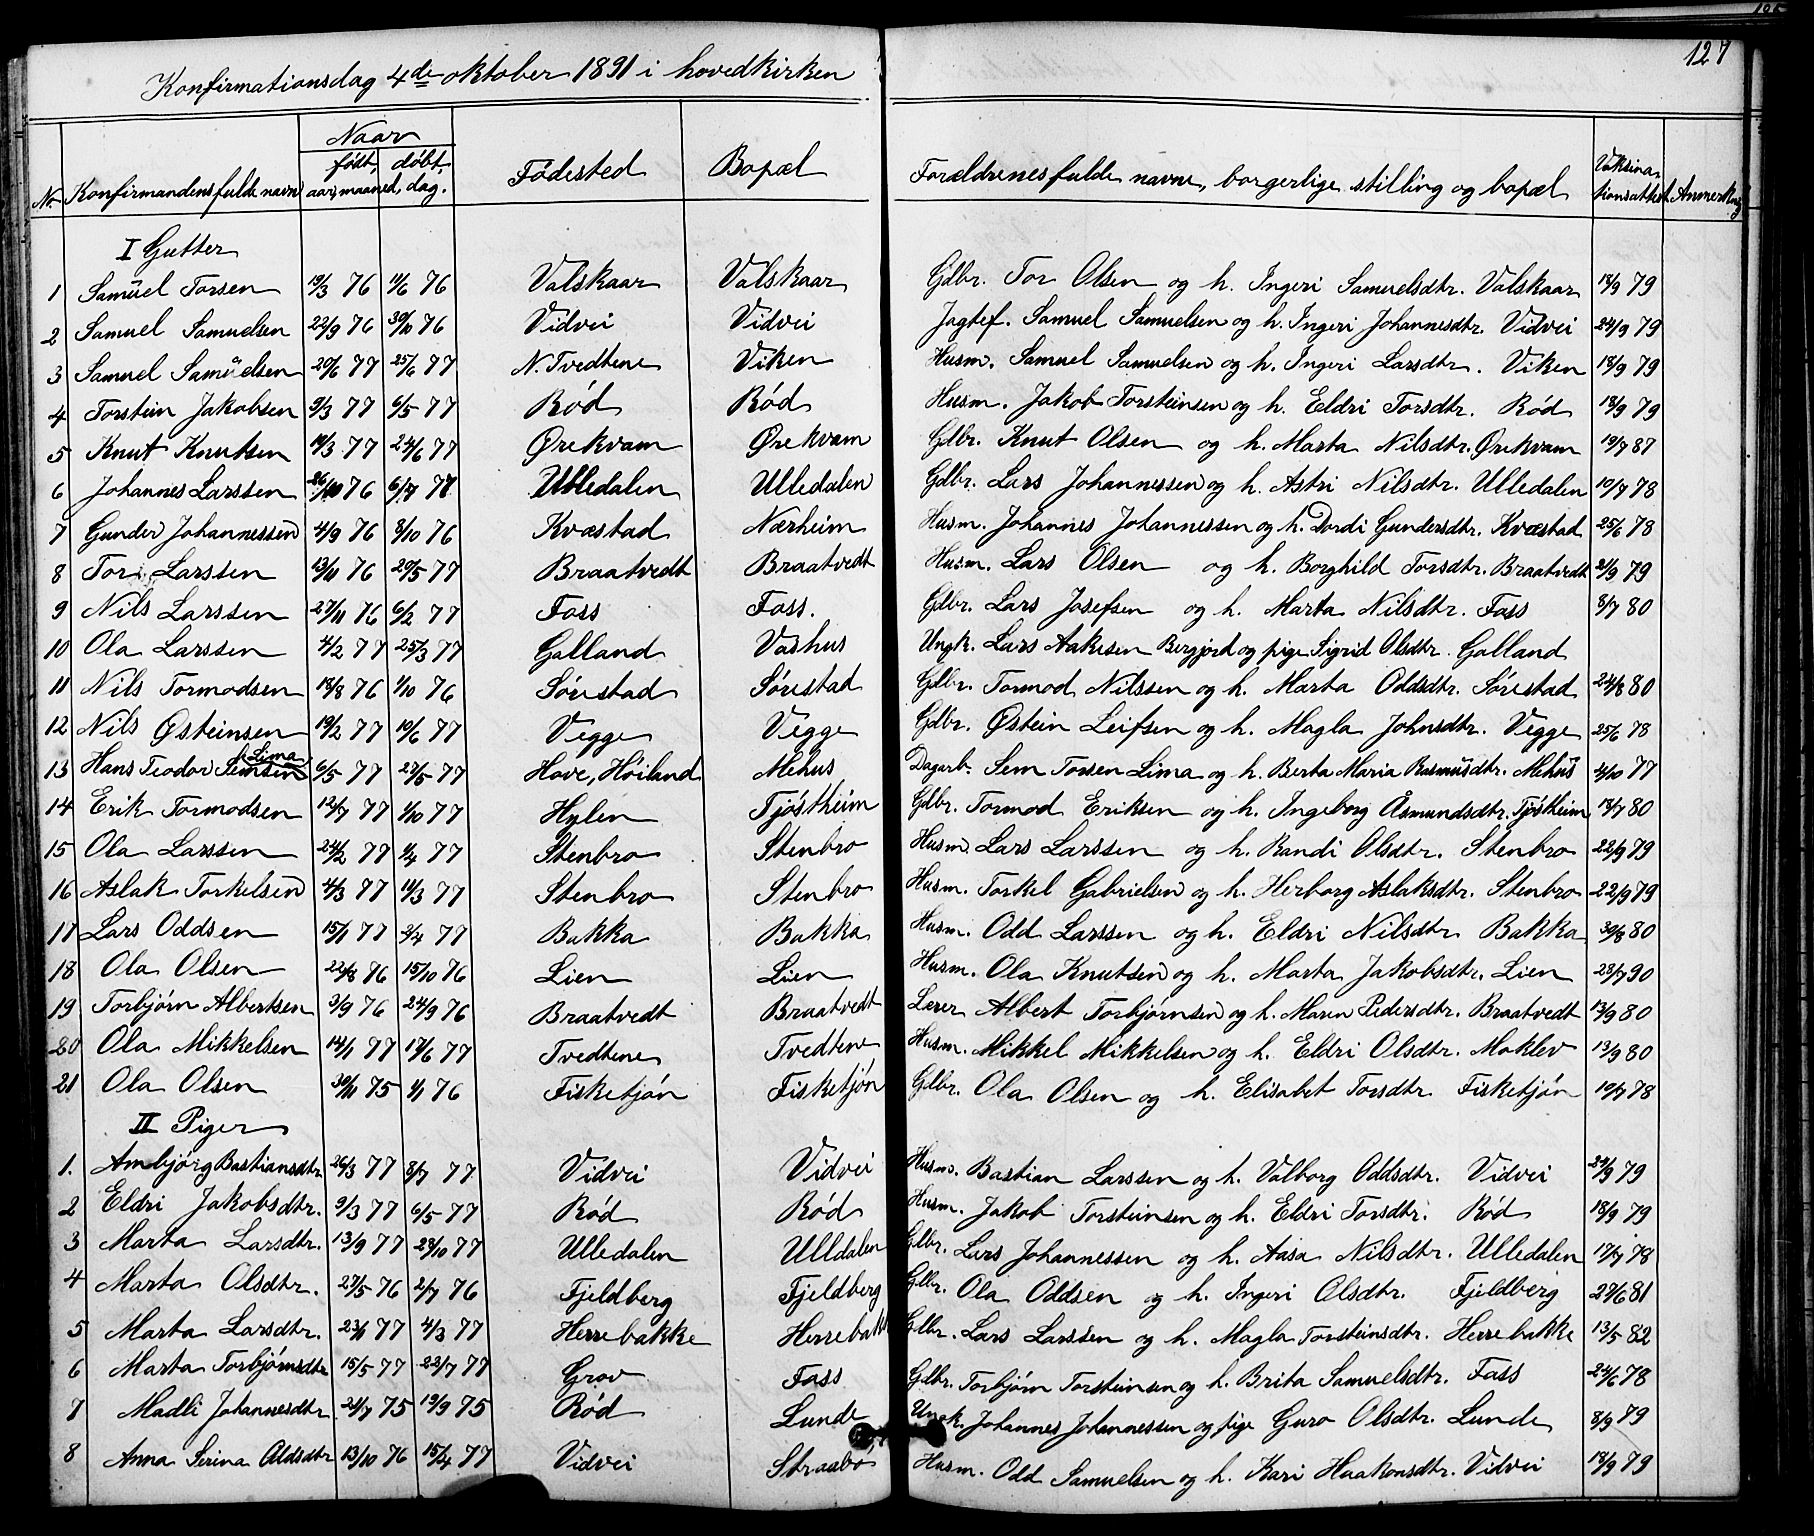 127
Konfirmationsdag 4de oktober 1891 i hovedkirken
Nr. Konfirmandens fulde navn Naar født, døbt, aar, maaned, dag. Fødested Bopæl Forældrenes fulde navne, borgerlige stilling og bopæl Vaksinationsattest Anmerkng
I Gutter
1 Samuel Torsen 19/3 76 11/6 76 Valskaar Valskaar Gdbr. Tor Olsen og h. Ingeri Samuelsdtr. Valskaar 18/9 79
2 Samuel Samuelsen 22/9 76 30/10 76 Vidvei Vidvei Jagtef. Samuel Samuelsen og h. Ingeri Johannesdtr. Vidvei 24/9 79
3 Samuel Samuelsen 20/6 77 25/6 77 N. Tvedtene Viken Husm. Samuel Samuelsen og h. Ingeri Larsdtr. Viken 18/9 79
4 Torstein Jakobsen 9/3 77 6/5 77 Rød Rød Husm. Jakob Torsteinsen og h. Eldri Torsdtr. Rød 18/9 79
5 Knut Knutsen 14/3 77 24/6 77 Ørekvam Ørekvam Glbr. Knut Olsen og h. Marta Nilsdtr. Ørekvam 19/7 87
6 Johannes Larssen 26/10 76 6/7 77 Ulledalen Ulledalen Gdbr. Lars Johannessen og h. Astri Nilsdtr. Ulledalen 10/7 78
7 Gunder Johannessen 4/9 76 8/10 76 Kvæstad Nærheim Husm. Johannes Johannessen og h. Dordi Gundersdtr. Kvæstad 25/6 78
8 Tor Larssen 13/11 76 20/5 77 Braatvedt Braatvedt Husm. Lars Olsen og h. Borghild Torsdtr. Braatvedt 2/9 79
9 Nils Larssen 27/11 76 6/2 77 Foss Foss. Gdbr. Lars Josefsen og h. Marta Nilsdtr. Foss 8/7 80
10 Ola Larssen 4/2 77 25/3 77 Galland Vashus Ungk. Lars Aakesen Bergjord og pige Sigrid Olsdtr. Galland
11 Nils Tormodsen 18/8 76 1/10 76 Sørestad Sørestad Gdbr. Tormod Nilssen og h. Marta Oddsdtr. Sørestad 24/8 80
12 Nils Østeinsen 19/2 77 10/6 77 Vegge Vegge Gdbr. Østein Leifsen og h. Magla Johnsdtr. Vegge 25/6 78
13 Hans Teodor Semsen Lima 6/5 77 27/5 77 Hove, Høiland Mehus Dagarb. Sem Torsen Lima og h. Berta Maria Rasmusdtr. Mehus 4/10 77
14 Erik Tormodsen 12/7 77 1/10 77 Hylen Tjøstheim Gdbr. Tormod Eriksen og h. Ingeborg Åsmundsdtr. Tjøstheim 18/7 80
15 Ola Larssen 24/2 77 1/4 77 Stenbro Stenbro Husm. Lars Larssen og h. Randi Olsdtr. Stenbro 22/9 79
16 Aslak Torkelsen 4/3 77 11/3 77 Stenbro Stenbro Husm. Torkel Gabrielsen og h. Herborg Aslaksdtr. Stenbro 22/9 79
17 Lars Oddsen 15/1 77 2/4 77 Bakka Bakka Husm. Odd Larssen og h. Eldri Nilsdtr Bakka 30/8 80
18 Ola Olsen 22/8 76 15/10 76 Lien Lien Husm. Ola Knutsen og h. Marta Jakobsdtr. Lien 23/7 90
19 Torbjørn Albertsen 2/9 76 24/9 76 Braatvedt Braatvedt Lerer Albert Torbjørnsen og h. Maren Pedersdtr. Braatvedt 13/9 80
20 Ola Mikkelsen 14/1 77 17/6 77 Tvedtene Tvedtene Husm. Mikkel Mikkelsen og h. Eldri Olsdtr. Moklev 13/9 80
21 Ola Olsen 30/11 75 1/1 76 Fisketjøn Fisketjøn Glbr. Ola Olsen og h. Elisabet Torsdtr. Fisketjøn 10/7 78
II Piger
1. Ambjørg Bastiansdtr 26/3 77 8/7 77 Vidvei Vidvei Husm. Bastian Larssen og h. Valborg Oddsdtr. Vidvei 24/9 79
2 Eldri Jakobsdtr. 9/3 77 6/5 77 Rød Rød Husm. Jakob Torsteinsen og h. Eldri Torsdtr. Rød 18/9 79
3 Marta Larsdtr. 13/9 77 28/10 77 Ulledalen Ulldalen Glbr. Lars Johannessen og h. Aasa Nilsdtr. Ulledalen 17/7 78
4 Marta Olsdtr. 27/5 76 2/7 76 Fjeldberg Fjeldberg Glbr. Ola Oddsen og h. Ingeri Olsdtr. Fjeldberg 27/6 81
5 Marta Larsdtr. 23/1 77 4/3 77 Herrebakke Herrebakk Glbr. Lars Larssen og h. Magla Torsteinsdtr. Herrebakke 13/5 82
6 Marta Torbjørnsdtr 15/5 77 22/7 77 Grov Foss Glbr. Torbjørn Torsteinsen og h. Brita Samuelsdtr. Foss 24/6 78
7 Madli Johannesdtr 24/7 75 19/9 75 Rød Lunde Ungk. Johannes Johannessen og pige Guro Olsdtr. Lunde 8/9 79
8 Anna Serina Oldsdtr 13/10 76 15/4 77 Vidvei Straabø Husm. Odd Samuelsen og h. Kari Haakonsdtr. Vidvei 18/9 79